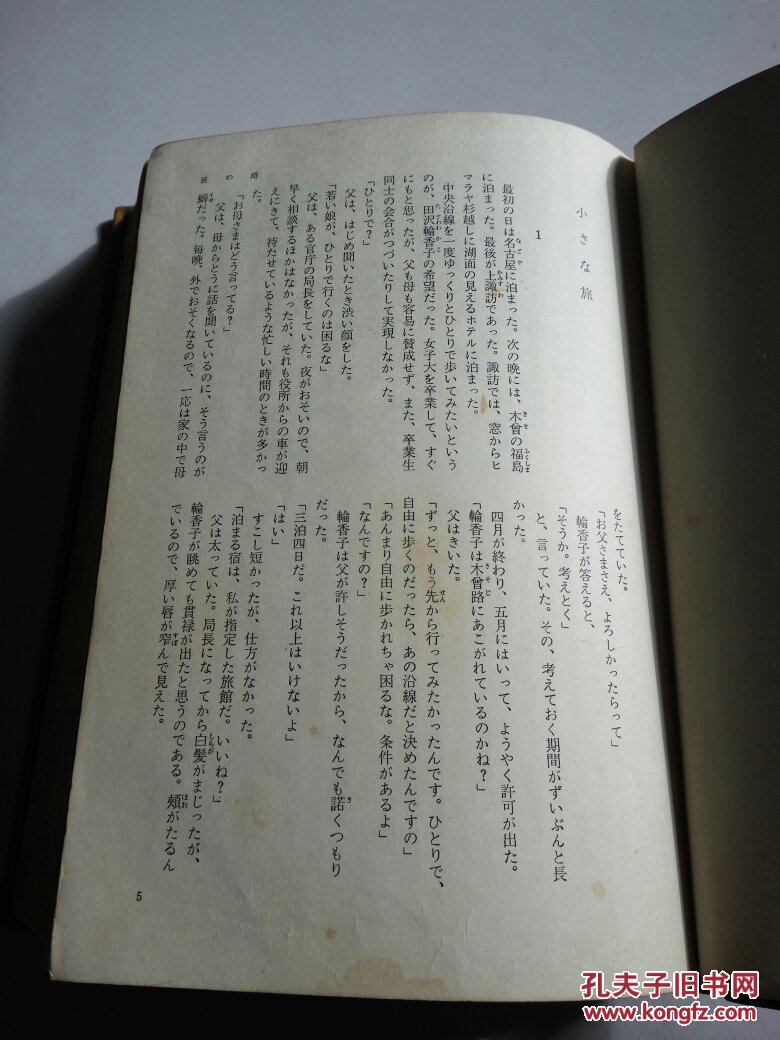 小さな旅
1
最初の日は名古屋に泊まった。次の晩には、木曾の福島
に泊まった。最後が上諏訪であった。諏訪では、窓からヒ
マラヤ杉越しに湖面の見えるホテルに泊まった。
中央沿線を一度ゆっくりとひとりで歩いてみたいという
のが、田沢輪香子の希望だった。女子大を卒業して、すぐ
にもと思ったが、父も母も容易に賛成せず、また、卒業生
同士の会合がつづいたりして実現しなかった。
「ひとりで?」
父は、はじめ聞いたとき渋い顔をした。
「若い娘が、ひとりで行くのは困るな」
父は、ある官庁の局長をしていた。夜がおそいので、朝
早く相談するほかはなかったが、それも役所からの車が迎
えにきて、待たせているような忙しい時間のときが多かっ
た。
「お母さまはどう言ってる?」
父は、母からとうに話を聞いているのに、そう言うのが
癖だった。毎晩、外でおそくなるので、一応は家の中で母
をたてていた。
「お父さまさえ、よろしかったらって」
輪香子が答えると、
「そうか。考えとく」
と、言っていた。その、考えておく期間がずいぶんと長
かった。
四月が終わり、五月にはいって、ようやく許可が出た。
「輪香子は木曾路にあこがれているのかね?」
父はきいた。
「ずっと、もう先から行ってみたかったんです。ひとりで、
自由に歩くのだったら、あの沿線だと決めたんですの」
「あんまり自由に歩かれちゃ困るな。条件があるよ」
「なんですの?」
輪香子は父が許しそうだったから、なんでも諾くつもり
だった。
「三泊四日だ。これ以上はいけないよ」
「はい」
すこし短かったが、仕方がなかった。
「泊まる宿は、私が指定した旅館だ。いいね?」
父は太っていた。局長になってから白髪がまじったが、
輪香子が眺めても貫禄が出たと思うのである。頰がたるん
でいるので、厚い唇が窄んで見えた。
波の塔
5
孔夫子旧书网
www.kongfz.com